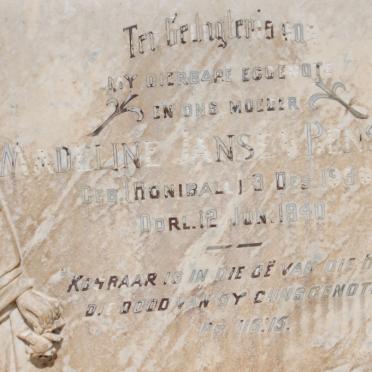 Ter Gedagtenis
MY DIERBARE EGGENOTE
EN ONS MOEDER
MADELINE JANSEN
GEB. HONIBALL 13 DES.
OORL. 12 JUN. 1940
"KOSBAAR IS IN DIE OË VAN DIE
DIE DOOD VAN SY GUNSGENOTE
PS. 116:15.